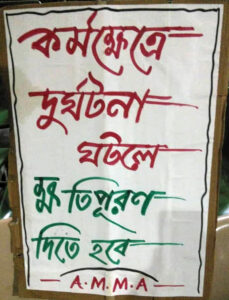 কর্মক্ষেত্রে
দুর্ঘটনা
ঘটলে
ক্ষতিপূরণ
দিতে হবে
A.M.M.A